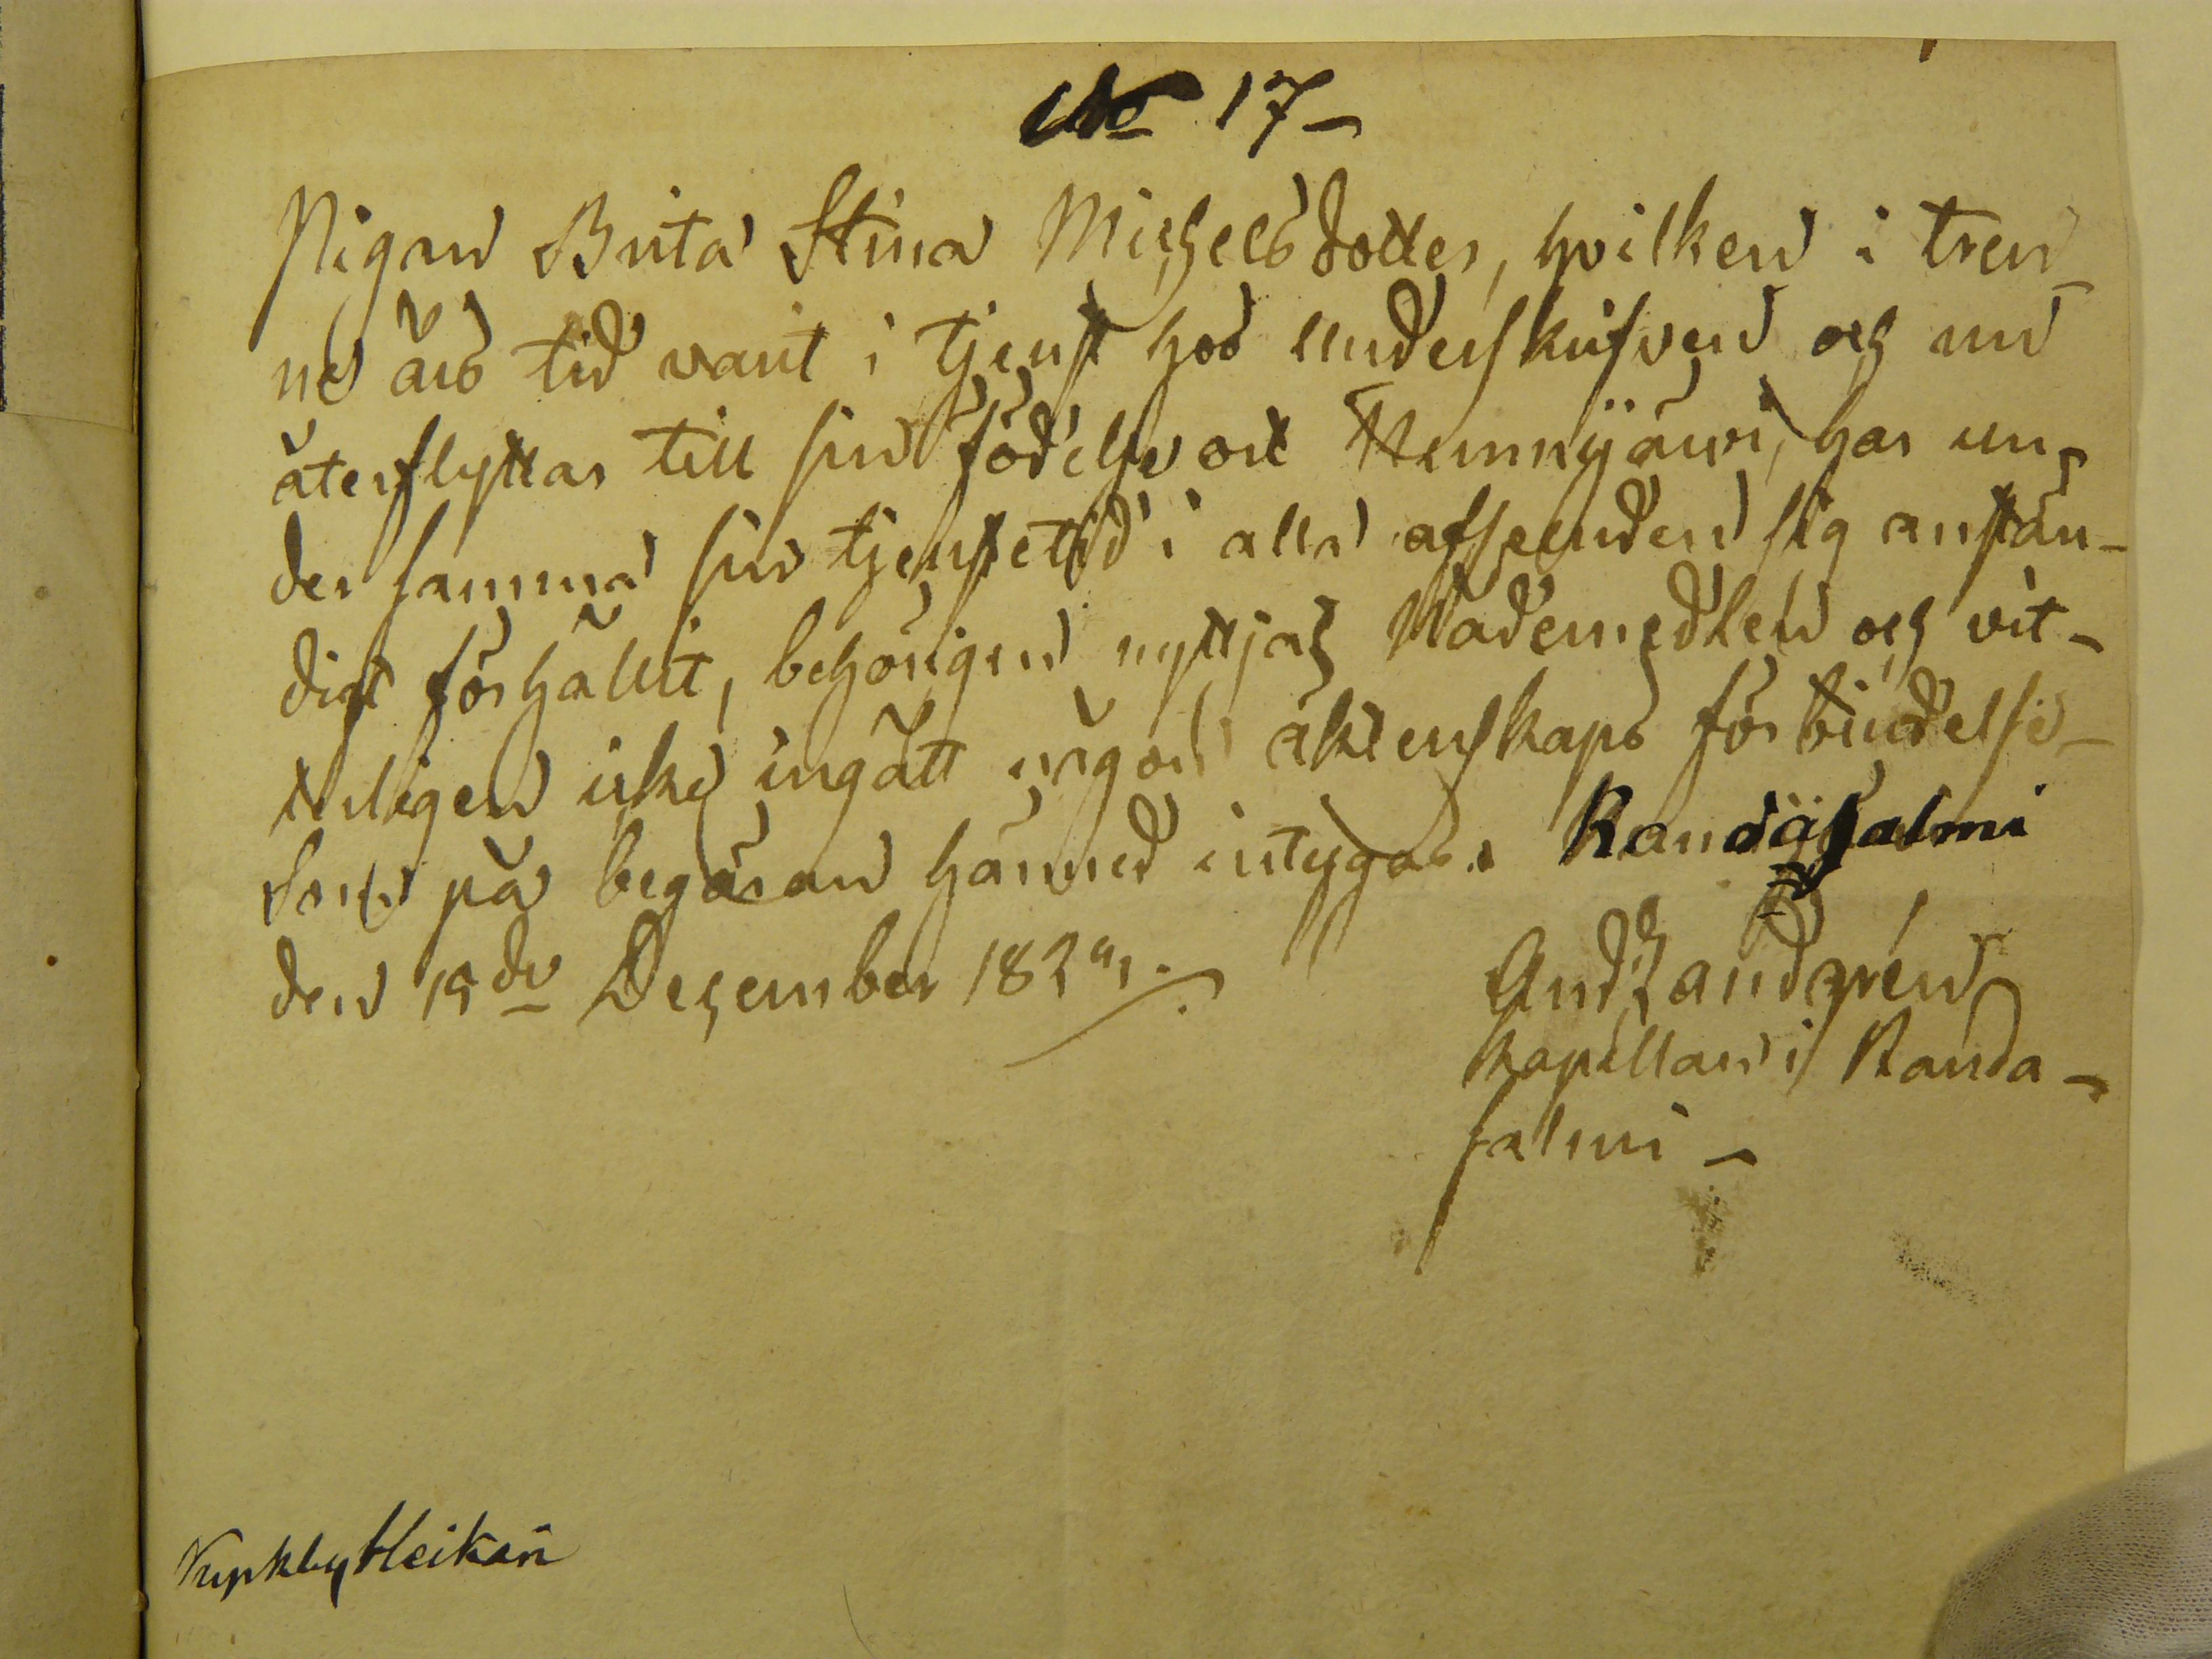 No 17_
Pigan Brita Stina Michelsdotter, hvilken i tren-
ne års tid varit i tjenst hos underskrifven och nu
återflyttar till sin födelse ort Nummijärvi, har un-
der samma sin tjenstetid i alla afseenden sig anstän-
digt förhållit, behörigen nyttjat Nådemedlen och vit-
terligen icke ingått någon äktenskaps förbindelse_
Som på begäran härmed intygas. Randasalmi
den 15de December 182
And Landgrén
Kapellan i Randa-
salmi _
Heikan